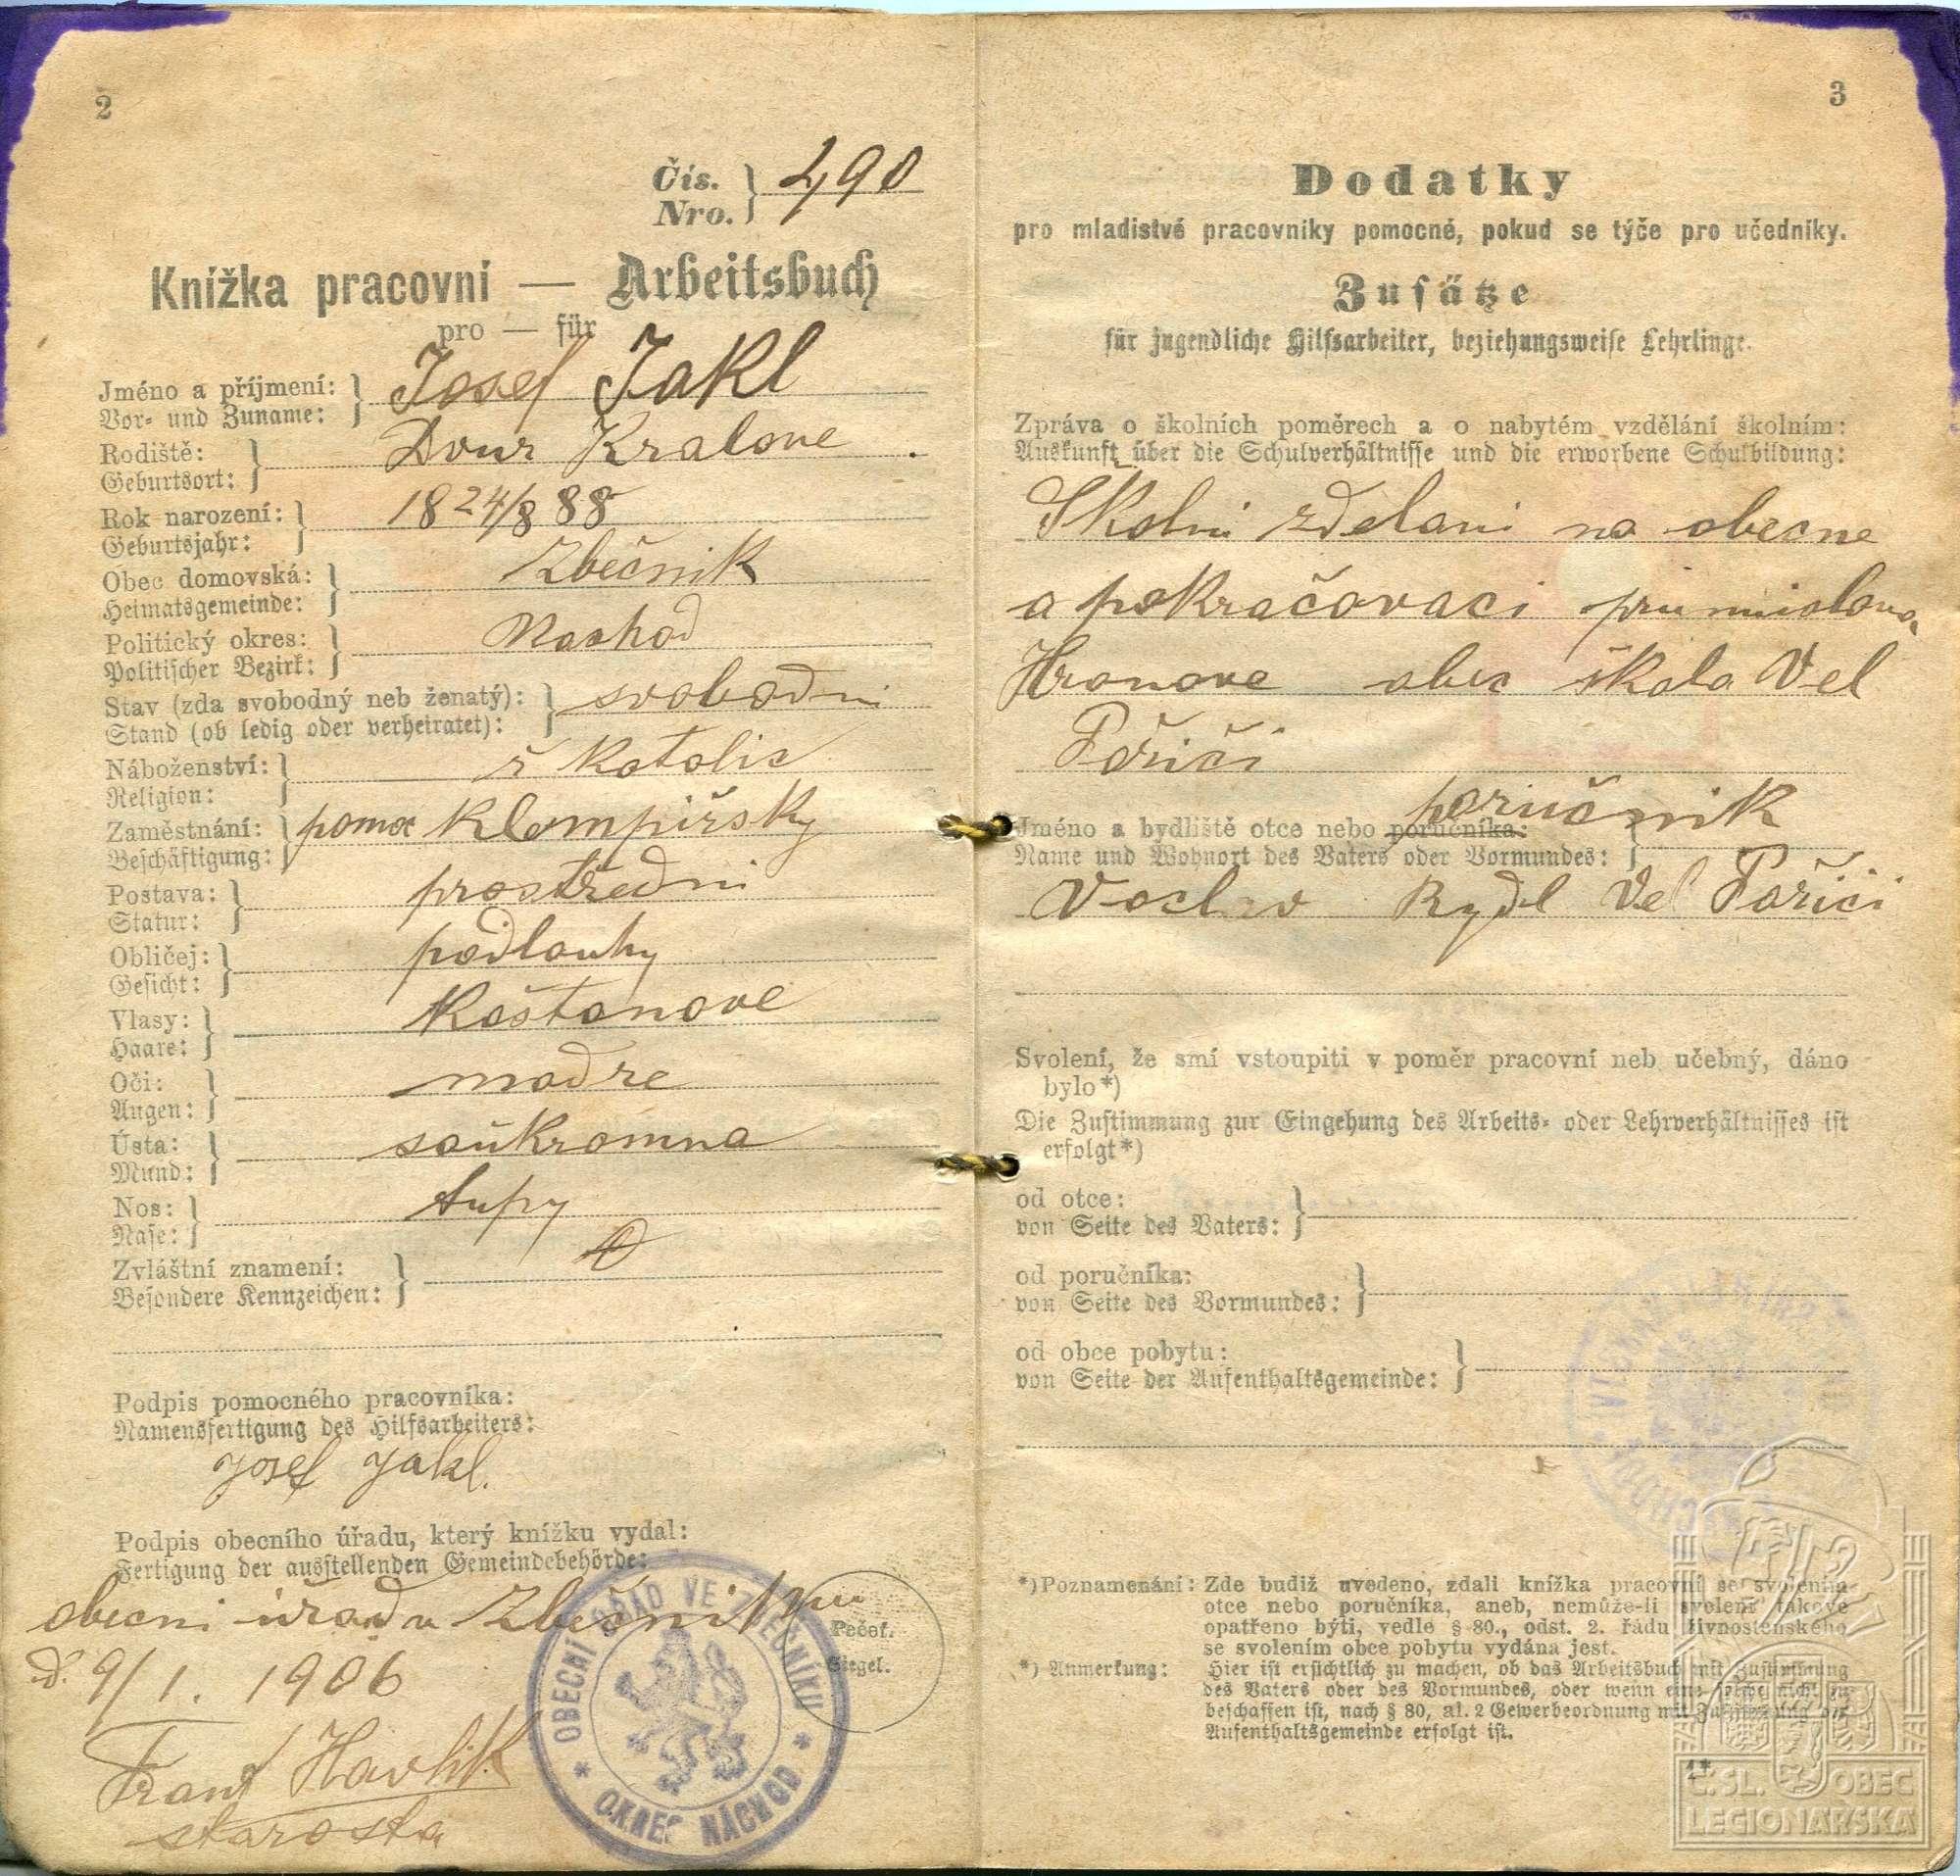 2
Čís.
Nro. } 490
Knížka pracovní — Arbeitsbuch
pro — für
Jméno a příjmení:
Vor- und Zuname: } Josef Jakl
Rodiště:
Geburtsort: } Dvur Kralove .
Rok narození:
Geburtsjahr: } 1824/8 88
Obec domovská:
Heimatsgemeinde: } Zbečnik
Politický okres:
Politischer Bezirk: } Nachod
Stav (zda svobodný neb ženatý):
Stand (ob ledig oder verheiratet): } svobodni
Náboženství:
Religion: } ř katolic
Zaměstnání:
Beschäftigung: } pomoc klempiřsky
Postava:
Statur: } prostředni
Obličej:
Gesicht: } podlouhy
Vlasy:
Haare: } Kaštanove
Oči:
Augen: } modre
Ústa:
Mund: } soukromna
Nos:
Nase: } tupy
Zvláštní znamení:
Besondere Kennzeichen: } 0
Podpis pomocného pracovníka:
Namensfertigung des Hilfsarbeiters:
Josef Jakl.
Podpis obecního úřadu, který knížku vydal:
Fertigung der ausstellenden Gemeindebehörde:
obecni úřad u Zbečniku
d. 9/1. 1906
Frant Havlik
starosta
OBECNÍ ÚŘAD VE ZBEČNÍKU
* OKRES NÁCHOD *
Pečeť.
Siegel.
3
Dodatky
pro mladistvé pracovníky pomocné, pokud se týče pro učedníky.
Zusätze
für jugendliche Hilfsarbeiter, beziehungsweise Lehrlinge.
Zpráva o školních poměrech a o nabytém vzdělání školním:
Auskunft über die Schulverhältnisse und die erworbene Schulbildung:
Školni zdelani na obecne
a pokračovaci prumislova
Hronove obec škola Vel
Pořiči
Jméno a bydliště otce nebo poručníka: poručnik
Name und Wohnort des Vaters oder Vormundes: }
Vaclav Rydl Vel Pořiči
Svolení, že smí vstoupiti v poměr pracovní neb učebný, dáno
bylo*)
Die Zustimmung zur Eingehung des Arbeits- oder Lehrverhältnisses ist
erfolgt*)
od otce:
von Seite des Vaters: }
od poručníka:
von Seite des Vormundes: }
od obce pobytu:
von Seite der Aufenthaltsgemeinde: }
*) Poznamenání: Zde budiž uvedeno, zdali knížka pracovní se svolením
otce nebo poručníka, aneb, nemůže-li svolení takové
opatřeno býti, vedle § 80., odst. 2. řádu živnostenského
se svolením obce pobytu vydána jest.
*) Anmerkung: Hier ist ersichtlich zu machen, ob das Arbeitsbuch mit Zustimmung
des Vaters oder des Vormundes, oder wenn eine solche nicht zu
beschaffen ist, nach § 80, al. 2 Gewerbeordnung mit Zustimmung der
Aufenthaltsgemeinde erfolgt ist.
1*
Č. SL. OBEC
LEGIONÁŘSKÁ